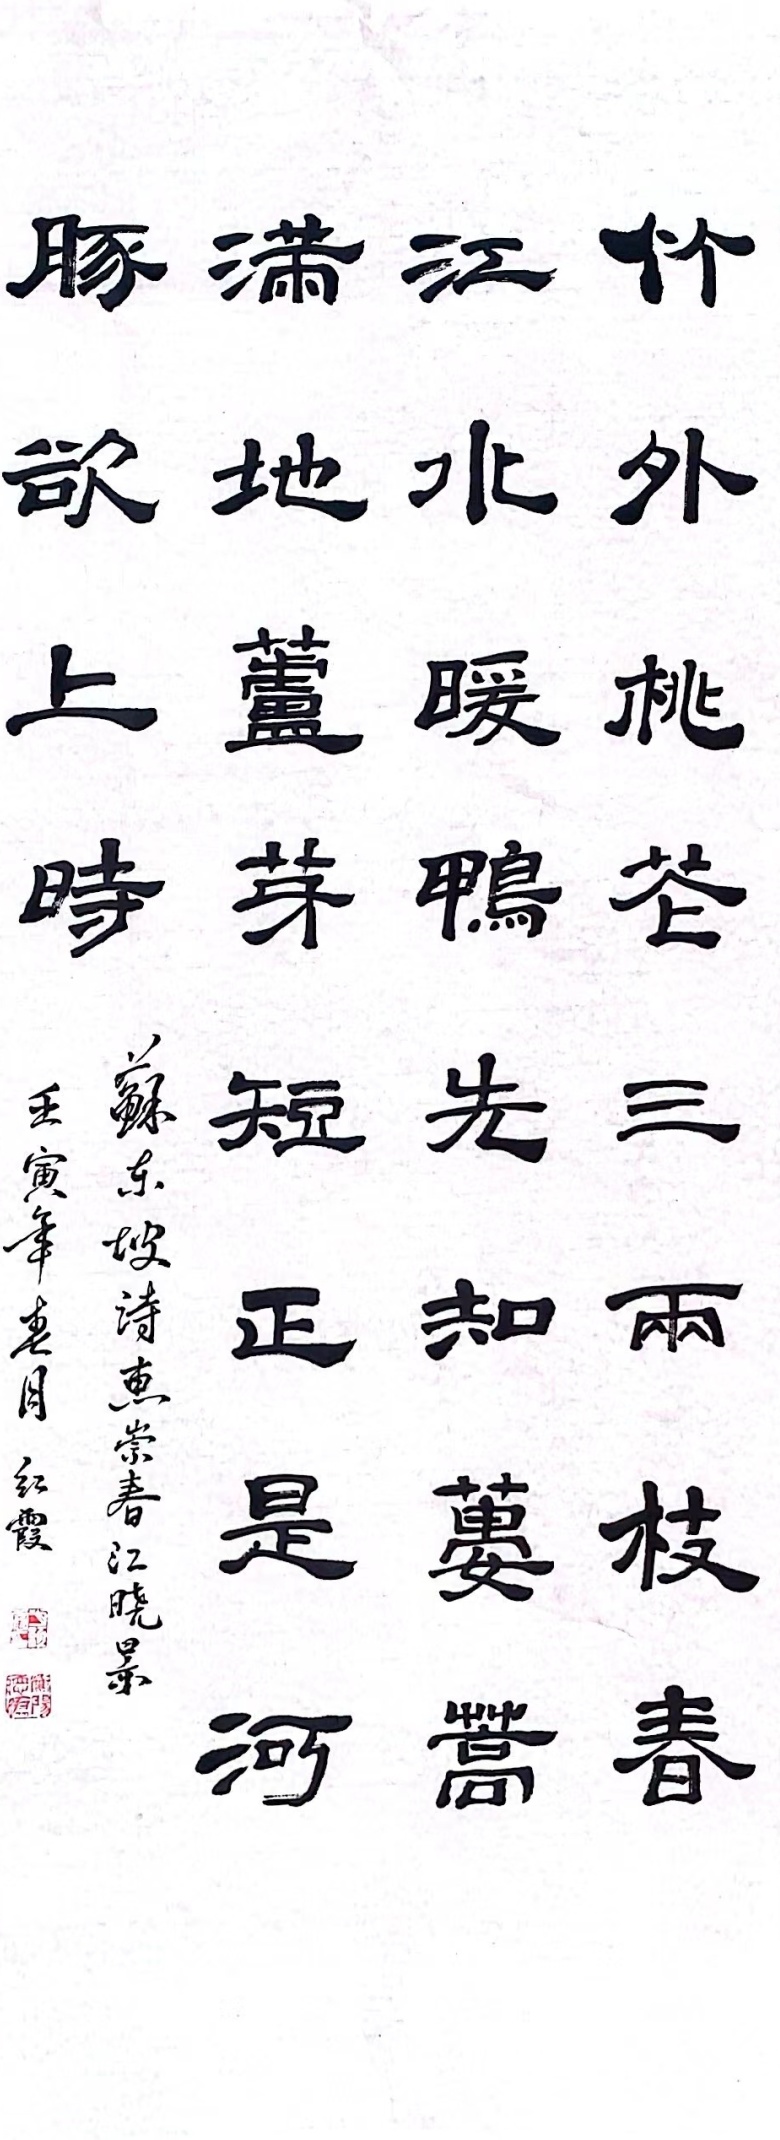 竹外桃花三兩枝春
江水暖鴨先知蔞蒿
满地蘆芽短正是河
豚欲上時
蘇东坡詩惠崇春江晓景
壬寅年春月 红霞